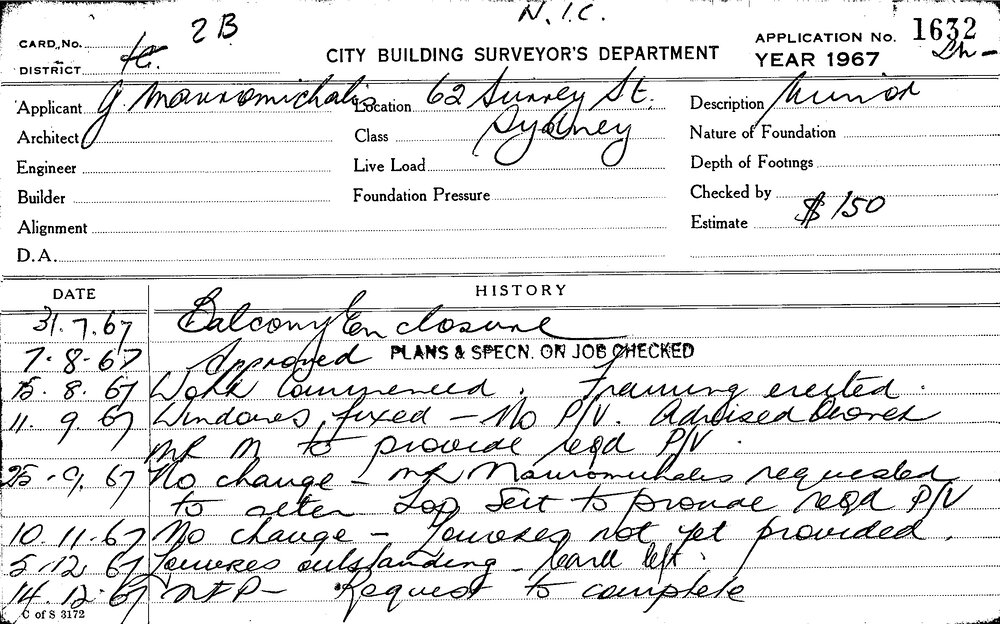 N.I.C.
CARD, No. 2B
DISTRICT
CITY BUILDING SURVEYOR'S DEPARTMENT
APPLICATION No. 1632
YEAR 1967
Applicant G Mavromichalis
Location 62 Surrey St. Sydney
Description Minor
Architect
Class
Nature of Foundation
Engineer
Live Load
Depth of Footings
Builder
Foundation Pressure
Checked by
Alignment
Estimate $150
D.A.
DATE HISTORY
31.7.67 Balcony Enclosure
7.8.67 Approved PLANS & SPECN. ON JOB CHECKED
15.8.67 Work Commenced. Framing erected.
11.9.67 Windows fixed - No P/V. Advised Owner
Mr M to provide reqd P/V.
25.9.67 No change - Mr Mavromichalis requested
to alter Top to provide reqd P/V
10.11.67 No change - Louvres not yet provided.
5.12.67 Louvres outstanding - Card left.
14.12.67 Request to complete
C of S 3172